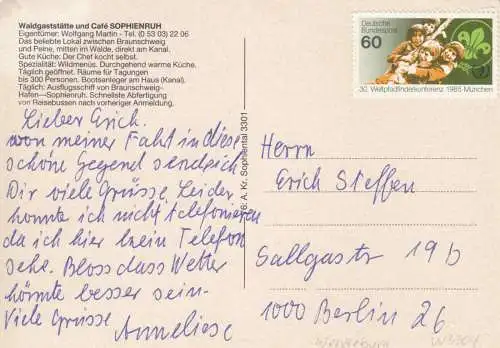 Waldgaststätte und Café SOPHIENRUH
Eigentümer: Wolfgang Martin - Tel. (0 53 03) 22 06
Das beliebte Lokal zwischen Braunschweig
und Peine, mitten im Walde, direkt am Kanal.
Gute Küche: Der Chef kocht selbst.
Spezialität: Wildmenüs. Durchgehend warme Küche.
Täglich geöffnet. Räume für Tagungen
bis 300 Personen. Bootsanleger am Haus (Kanal).
Täglich: Ausflugsschiff von Braunschweig-
Hafen—Sophienruh. Schnellste Abfertigung
von Reisebussen nach vorheriger Anmeldung.
Lieber Erich.
von meiner Fahrt in diese
schöne Gegend sende ich
Dir viele Grüsse. Leider
konnte ich nicht telefonieren
da ich hier kein Telefon
sehe. Bloss dass Wetter
könnte besser sein-
Viele Grüsse
Anneliese
6: A. Kr. Sophiental 3301
Deutsche
Bundespost
60
30. Weltpfadfinderkonferenz 1985 München
Herrn
Erich Steffen
Sallgastr 19b
1000 Berlin 26